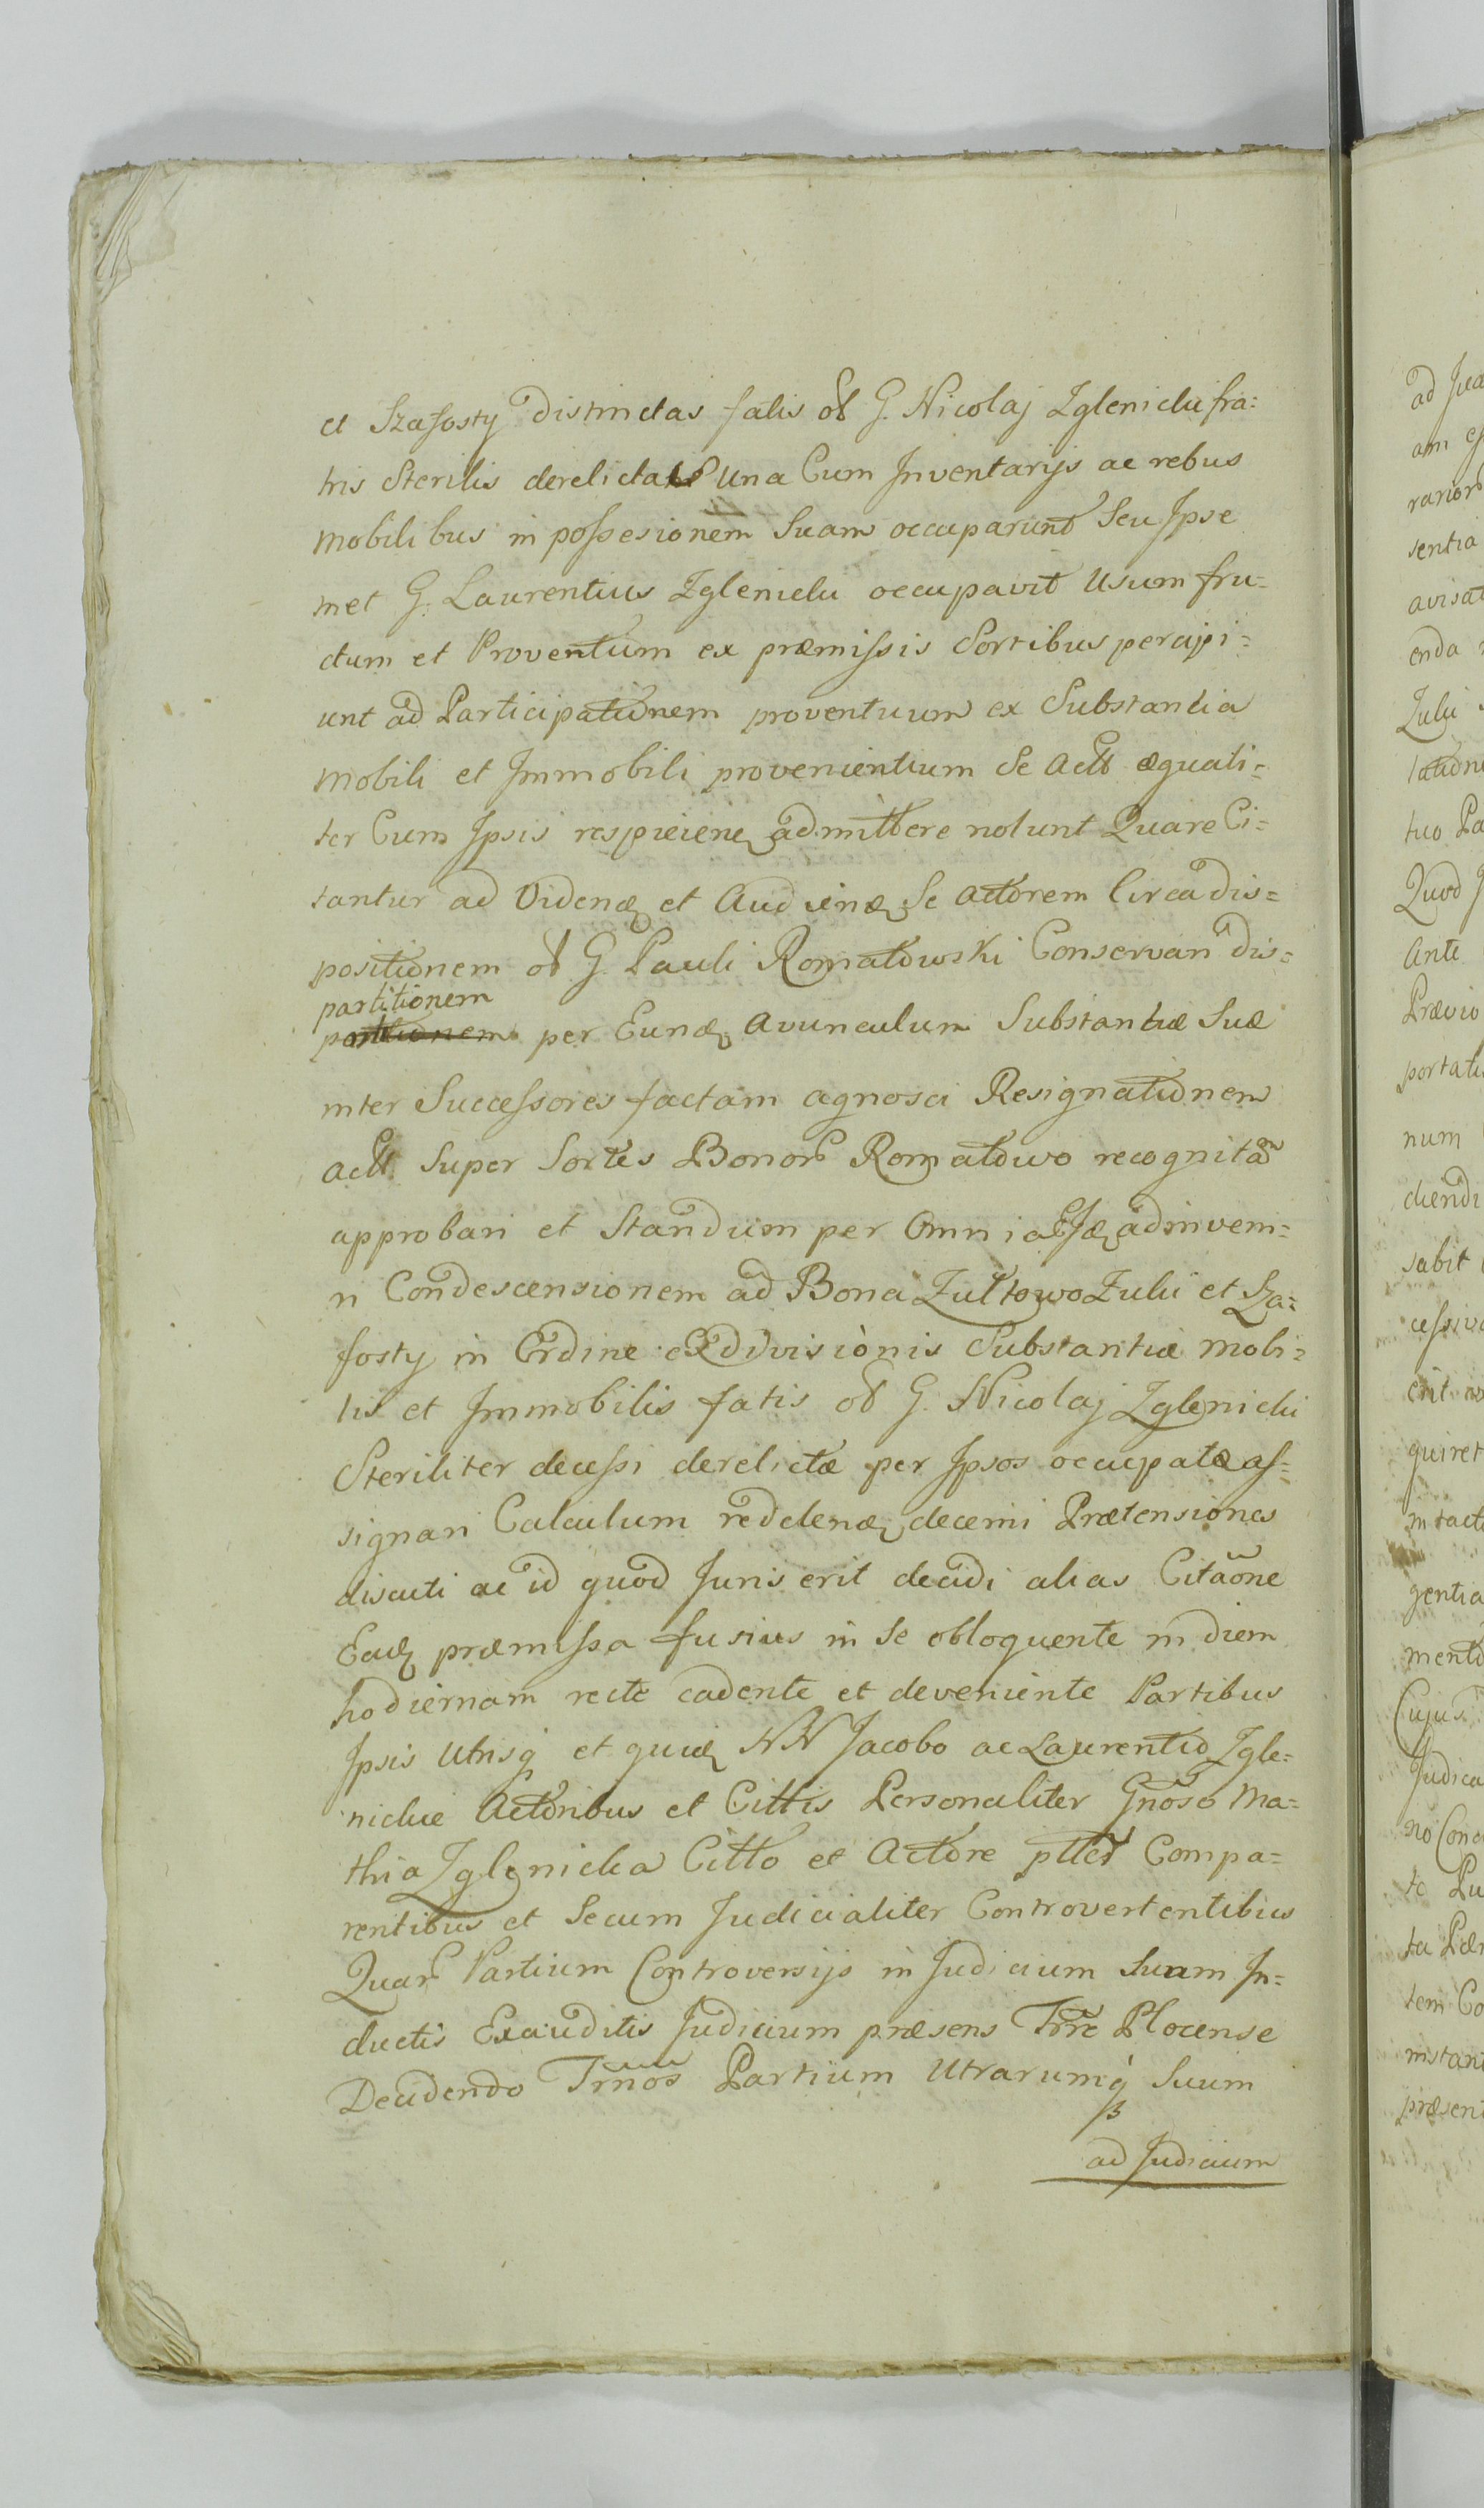 et Szafosty distinctas fatis ol G. Nicolaj Zglenicki fra=
tris Sterilis derelictas una Cum Inventarijs ac rebus
mobilibus in possesionem Suam occuparunt Seu Ipse
met G. Laurentius Zglenicki occupavit Usum fru=
ctum et Proventum ex præmissis Sortibus percipi=
unt ad Participationem proventuum ex Substantia
mobili et Immobili provenientium Se act æquali=
ter Cum Ipsis respicien admittere nolunt Quare Ci=
tantur ad Videnđ et Audienđ Se actorem Circa dis=
positionem ol G. Pauli Romatowski Conservan dis=
partitionem
portionem per Eunđ avunculum Substantiæ Suæ
inter Successores factam agnosci Resignationem
act Super Sortes Bonor Romatowo recognitã
approbari et Standum per Omnia adinveni=
ri Condescensionem ad Bona Zultowo Zulki et Sza=
fosty in Ordine exdivisionis Substantiæ mobi=
lis et Immobilis fatis ol G. Nicolaj Zglenicki
Steriliter decessi derelictæ per Ipsos occupatæ as=
signari Calculum reddenđ decerni Prætensiones
discuti ac id quod Juris erit decidi alias Citaõne
Eađ præmissa fusius in Se obloquente in diem
hodiernam recte cadente et deveniente Partibus
Ipsis Utrisq et quiđ NN Jacobo ac Laurentio Zgle=
nickie Actoribus et Cittis Personaliter Gñoso Ma=
thia Zglenicka Citto et Actore ptter Compa=
rentibus et Secum Judicialiter Controvertentibus
Quar Partium Controversijs in Judicium Suum In=
ductis Exauditis Judicium præsens Trre Plocense
Decidendo Trnõs Partium Utrarumq Suum
ad Judicium